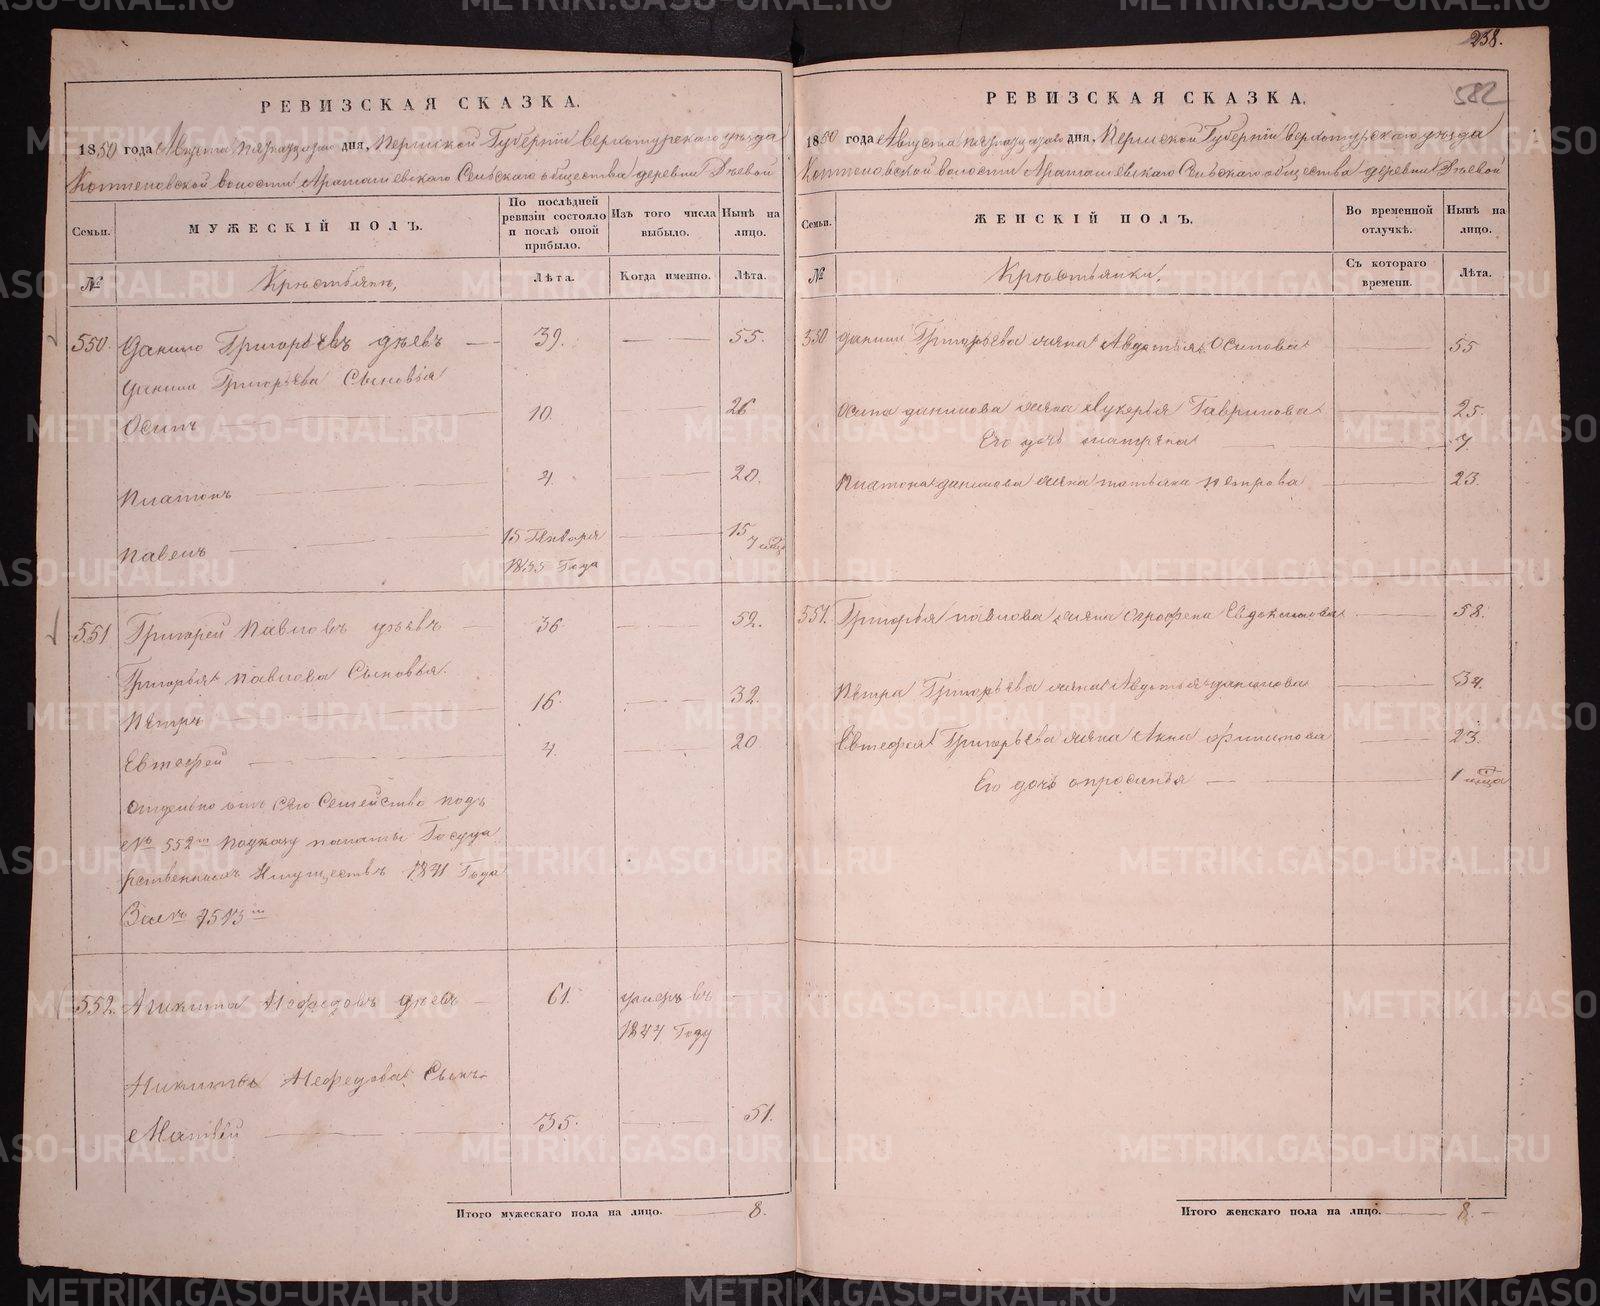 238.
582
РЕВИЗСКАЯ СКАЗКА.
1850 года Августа пятнадцатого дня, Пермской Губерніи Верхотурскаго уѣзда
Коптеловской волости Арамашевскаго Сельскаго общества деревни Дѣевой
Семьи.
МУЖЕСКІЙ ПОЛЪ.
По послѣдней ревизіи состояло и послѣ оной прибыло.
Изъ того числа выбыло.
Нынѣ на лицо.
№
Крестьяне,
Лѣта.
Когда именно.
Лѣта.
550. Данило Григорьевъ Дѣевъ — 39. — 55.
Данила Григорьева Сыновья
Осипъ — 10. — 26
Платонъ — 4. — 20.
Павелъ — 15 Генваря 1835 Года — 15 7 мѣц
551 Григорей Павловъ Дѣевъ — 36 — 52.
Григорья Павлова Сыновья.
Петръ — 16. — 32.
Евтефей — 4. — 20
Отдельно отъ сего Семейство подъ
№ 552м по указу палаты Государственныхъ Имуществъ 1841 Года
За № 7513м
552. Никита Нефедовъ Дѣевъ — 61. умеръ въ 1844 Году
Никиты Нефедова Сынъ
Матвей — 35. — 51.
Итого мужескаго пола на лицо. — 8.
РЕВИЗСКАЯ СКАЗКА.
1850 года Августа пятнадцатого дня, Пермской Губерніи Верхотурскаго уѣзда
Коптеловской волости Арамашевскаго Сельскаго общества деревни Дѣевой
Семьи.
ЖЕНСКІЙ ПОЛЪ.
Во временной отлучкѣ.
Нынѣ на лицо.
№
Крестьянки,
Съ котораго времени.
Лѣта.
550 Данила Григорьева жена Авдотья Осипова — 55
Осипа Данилова жена Лукерья Гаврилова — 25.
Его дочь Матрена — 7.
Платона Данилова жена Татьяна Петрова — 23.
551. Григорья Павлова жена Огрофена Евдокимова — 58.
Петра Григорьева жена Авдотья Данилова — 34.
Евтефея Григорьева жена Анна Филипова — 23.
Его дочь Опросинья — 1 мѣца
Итого женскаго пола на лицо. — 8. —
METRIKI.GASO-URAL.RU